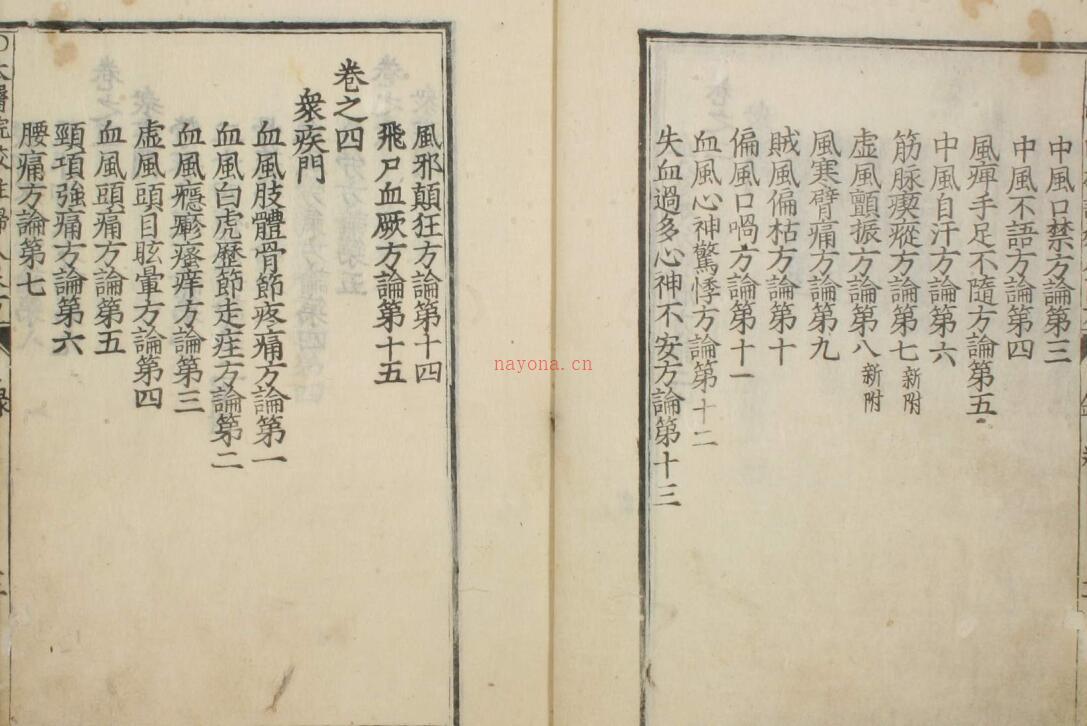 中風口禁方論第三
中風不語方論第四
風痺手足不隨方論第五
中風自汗方論第六
筋脉瘈瘲方論第七 新附
虚風顫振方論第八 新附
風寒臂痛方論第九
賊風偏枯方論第十
偏風口喎方論第十一
血風心神驚悸方論第十二
失血過多心神不安方論第十三
風邪顛狂方論第十四
飛尸血厥方論第十五
卷之四
衆疾門
血風肢體骨節疼痛方論第一
血風白虎歷節走疰方論第二
血風癮疹瘙痒方論第三
虚風頭目眩暈方論第四
血風頭痛方論第五
頸項強痛方論第六
腰痛方論第七
太醫院校註婦人
nayona.cn